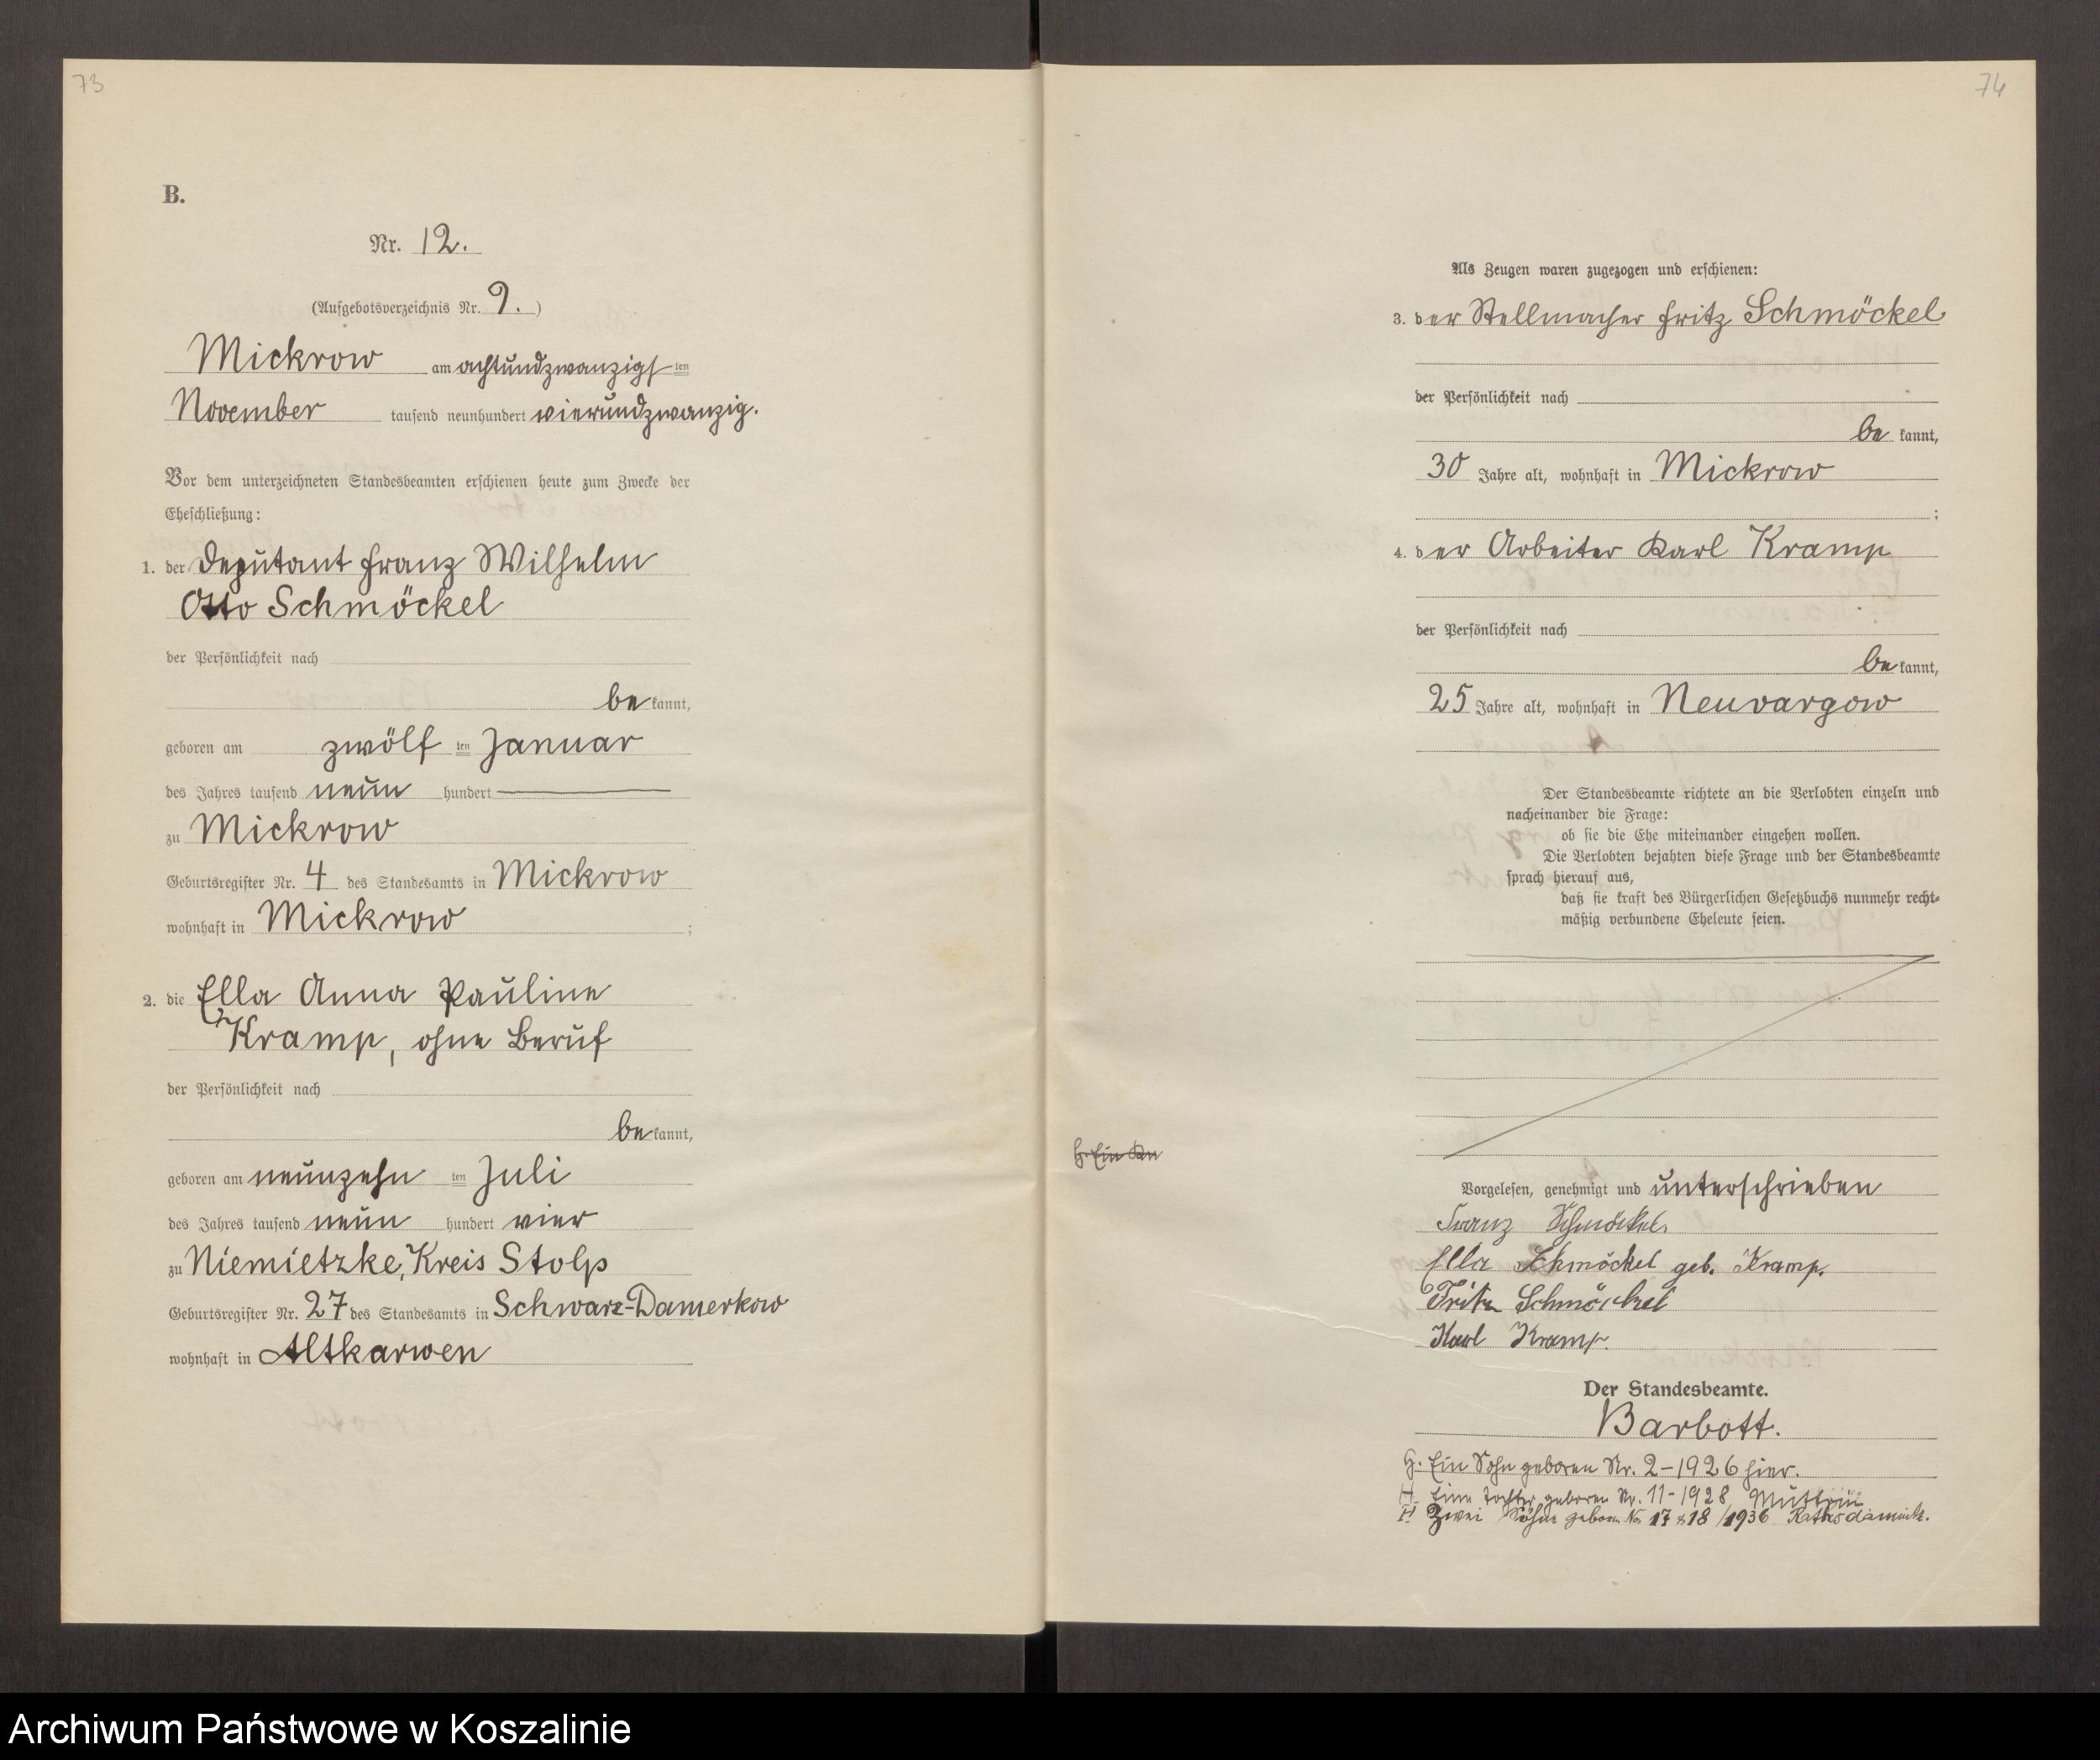 73
B.
Nr. 12.
(Aufgebotsverzeichnis Nr. 9.)
Mickrow am achtundzwanzigsten
November tausend neunhundert vierundzwanzig.
Vor dem unterzeichneten Standesbeamten erschienen heute zum Zwecke der
Eheschließung:
1. der Deputant Franz Wilhelm
Otto Schmöckel
der Persönlichkeit nach
bekannt,
geboren am zwölften Januar
des Jahres tausend neun hundert
zu Mickrow
Geburtsregister Nr. 4 des Standesamts in Mickrow
wohnhaft in Mickrow ;
2. die Ella Anna Pauline
Kramp, ohne Beruf
der Persönlichkeit nach
bekannt,
geboren am neunzehnten Juli
des Jahres tausend neun hundert vier
zu Niemietzke, Kreis Stolp
Geburtsregister Nr. 27 des Standesamts in Schwarz-Damerkow
wohnhaft in Altkarwen
74
Als Zeugen waren zugezogen und erschienen:
3. der Stellmacher Fritz Schmöckel
der Persönlichkeit nach
bekannt,
30 Jahre alt, wohnhaft in Mickrow
;
4. der Arbeiter Karl Kramp
der Persönlichkeit nach
bekannt,
25 Jahre alt, wohnhaft in Neuvargow
Der Standesbeamte richtete an die Verlobten einzeln und
nacheinander die Frage:
ob sie die Ehe miteinander eingehen wollen.
Die Verlobten bejahten diese Frage und der Standesbeamte
sprach hierauf aus,
daß sie kraft des Bürgerlichen Gesetzbuchs nunmehr recht-
mäßig verbundene Eheleute seien.
Vorgelesen, genehmigt und unterschrieben
Franz Schmöckel
Ella Schmöckel geb. Kramp.
Fritz Schmöckel
Karl Kramp.
Der Standesbeamte.
Barbott.
H. Ein Sohn geboren Nr. 2-1926 hier.
H. Eine Tochter geboren Nr. 11-1928 Muttrin
H. Zwei Söhne geboren No 17 & 18/1936 Rathsdamnitz.
Archiwum Państwowe w Koszalinie